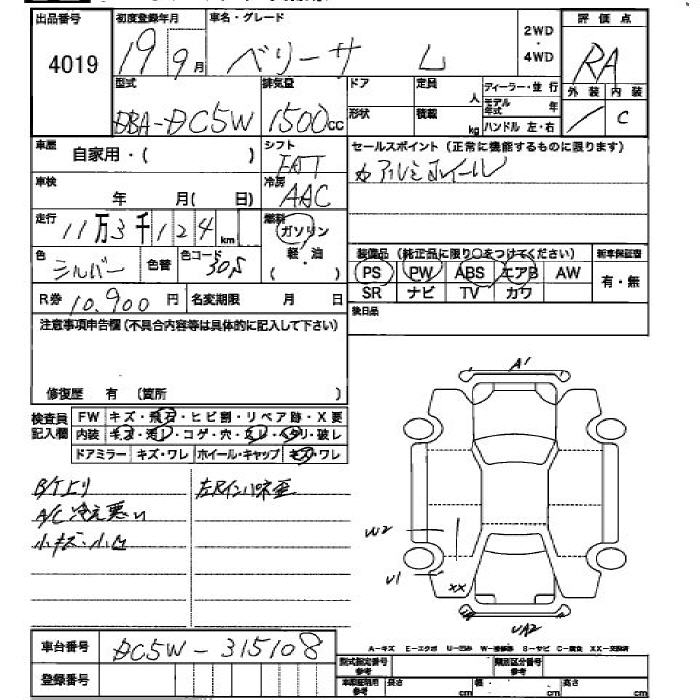 出品番号 初度登録年月 車名・グレード 2WD ・ 4WD 評価点
4019 19 9月 ベリーサ L RA
型式 排気量 ドア 定員 人 ディーラー・並行 外装 内装
DBA-DC5W 1500cc 形状 積載 kg モデル年式 年 ハンドル 左・右 / C
車歴 自家用・( ) シフト FAT セールスポイント(正常に機能するものに限ります)
車検 年 月(日) 冷房 AAC カアルミホイール
走行 11万3千124km 燃料 ガソリン 軽・油 ( )
色 シルバー 色替 色コード 30S 装備品(純正品に限り○をつけてください) 新車保証書
PS PW ABS エアB AW 有・無
R券 10,900円 名変期限 月 日 SR ナビ TV カワ
注意事項申告欄(不具合内容等は具体的に記入して下さい) 後日品
修復歴 有 (箇所 )
A1
検査員記入欄 FW キズ・飛石・ヒビ割・リペア跡・X要
内装 キズ・汚れ・コゲ・穴・スレ・ヘタリ・破レ
ドアミラー キズ・ワレ ホイール・キャップ キズ・ワレ
B/T上り 左Rインパネ歪
A/C冷え悪い
小キズ・小凹
W2
U1
XX
UA2
車台番号 DC5W-315108
A-キズ E-エクボ U-凹み W-補修跡 S-サビ C-腐食 XX-交換済
登録番号 型式指定番号 参考 類別区分番号 参考
車庫証明用 参考 長さ cm 幅 cm 高さ cm